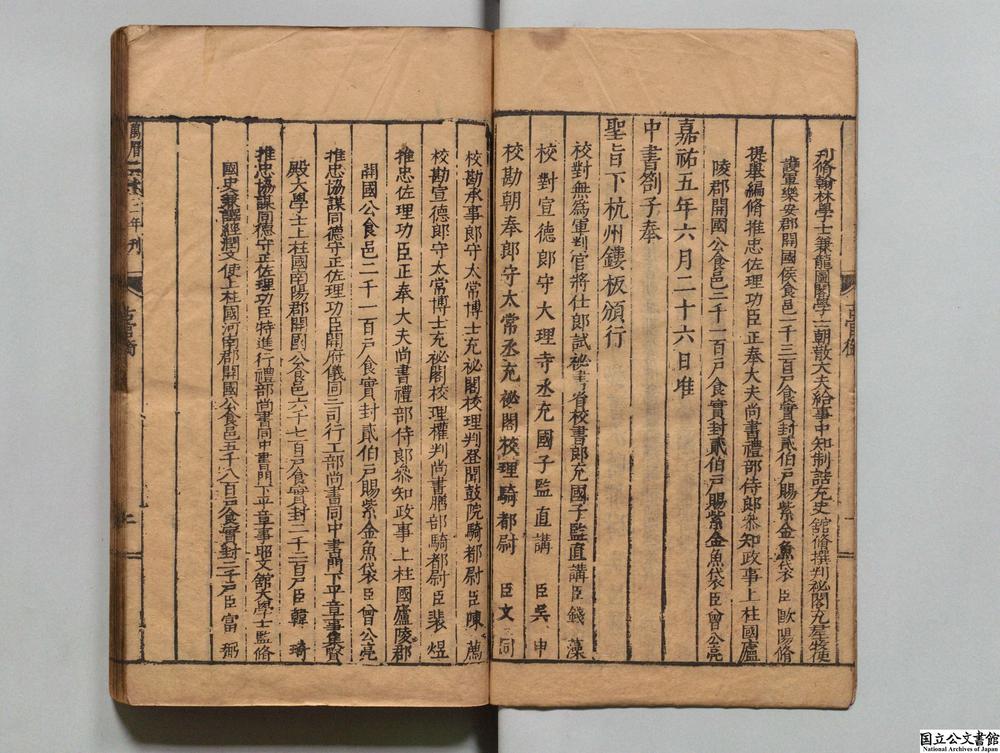 刋脩翰林學士兼龍圖閣學士朝散大夫給事中知制誥充史館脩撰判祕閣充羣牧使
護軍樂安郡開國侯食邑一千三百戶食實封貳伯戶賜紫金魚袋臣歐陽脩
提舉編脩推忠佐理功臣正奉大夫尚書禮部侍郎叅知政事上柱國廬
陵郡開國公食邑三千一百戶食實封貳伯戶賜紫金魚袋臣曾公亮
嘉祐五年六月二十六日准
中書劄子奉
聖旨下杭州鏤板頒行
校對無為軍判官將仕郎試祕書省校書郎充國子監直講臣錢藻
校對宣德郎守大理寺丞充國子監直講臣吳申
校勘朝奉郎守太常丞充祕閣校理騎都尉臣文同
校勘承事郎守太常博士充祕閣校理判登聞鼓院騎都尉臣陳薦
校勘宣德郎守太常博士充祕閣校理權判尚書膳部騎都尉臣裴煜
推忠佐理功臣正奉大夫尚書禮部侍郎叅知政事上柱國廬陵郡
開國公食邑二千一百戶食實封貳伯戶賜紫金魚袋臣曾公亮
推忠協謀同德守正佐理功臣開府儀同三司行工部尚書同中書門下平章事集賢
殿大學士上柱國南陽郡開國公食邑六千七百戶食實封二千二百戶臣韓琦
推忠協謀同德守正佐理功臣特進行禮部尚書同中書門下平章事昭文館大學士監脩
國史兼譯經潤文使上柱國河南郡開國公食邑五千八百戶食實封二千戶臣富弼
萬曆二十年刋
二
国立公文書館
National Archives of Japan